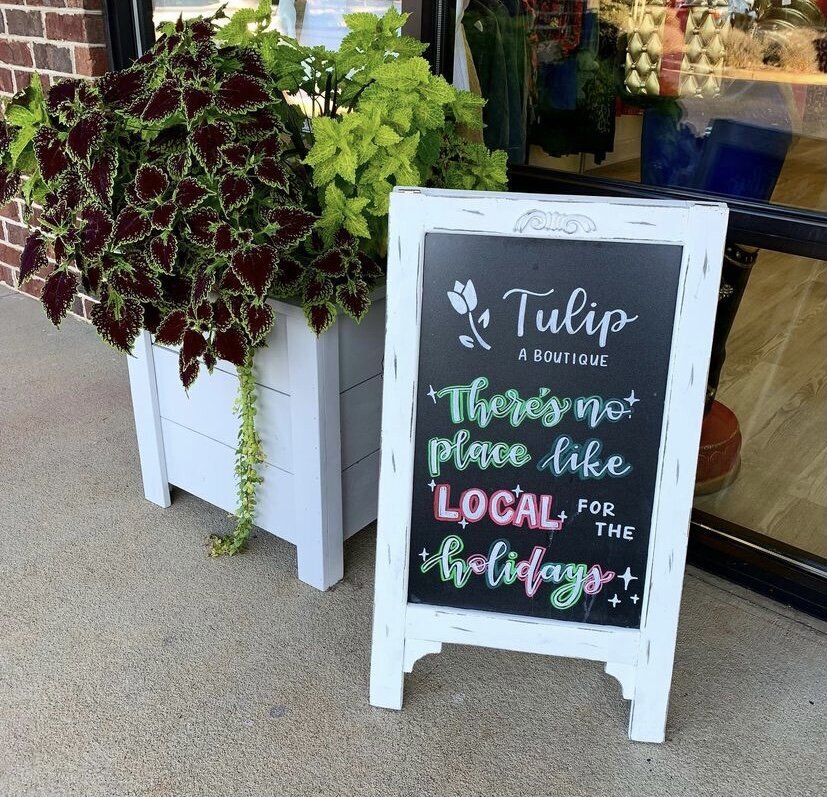 Tulip
A BOUTIQUE
There's no
place like
LOCAL FOR THE
holidays